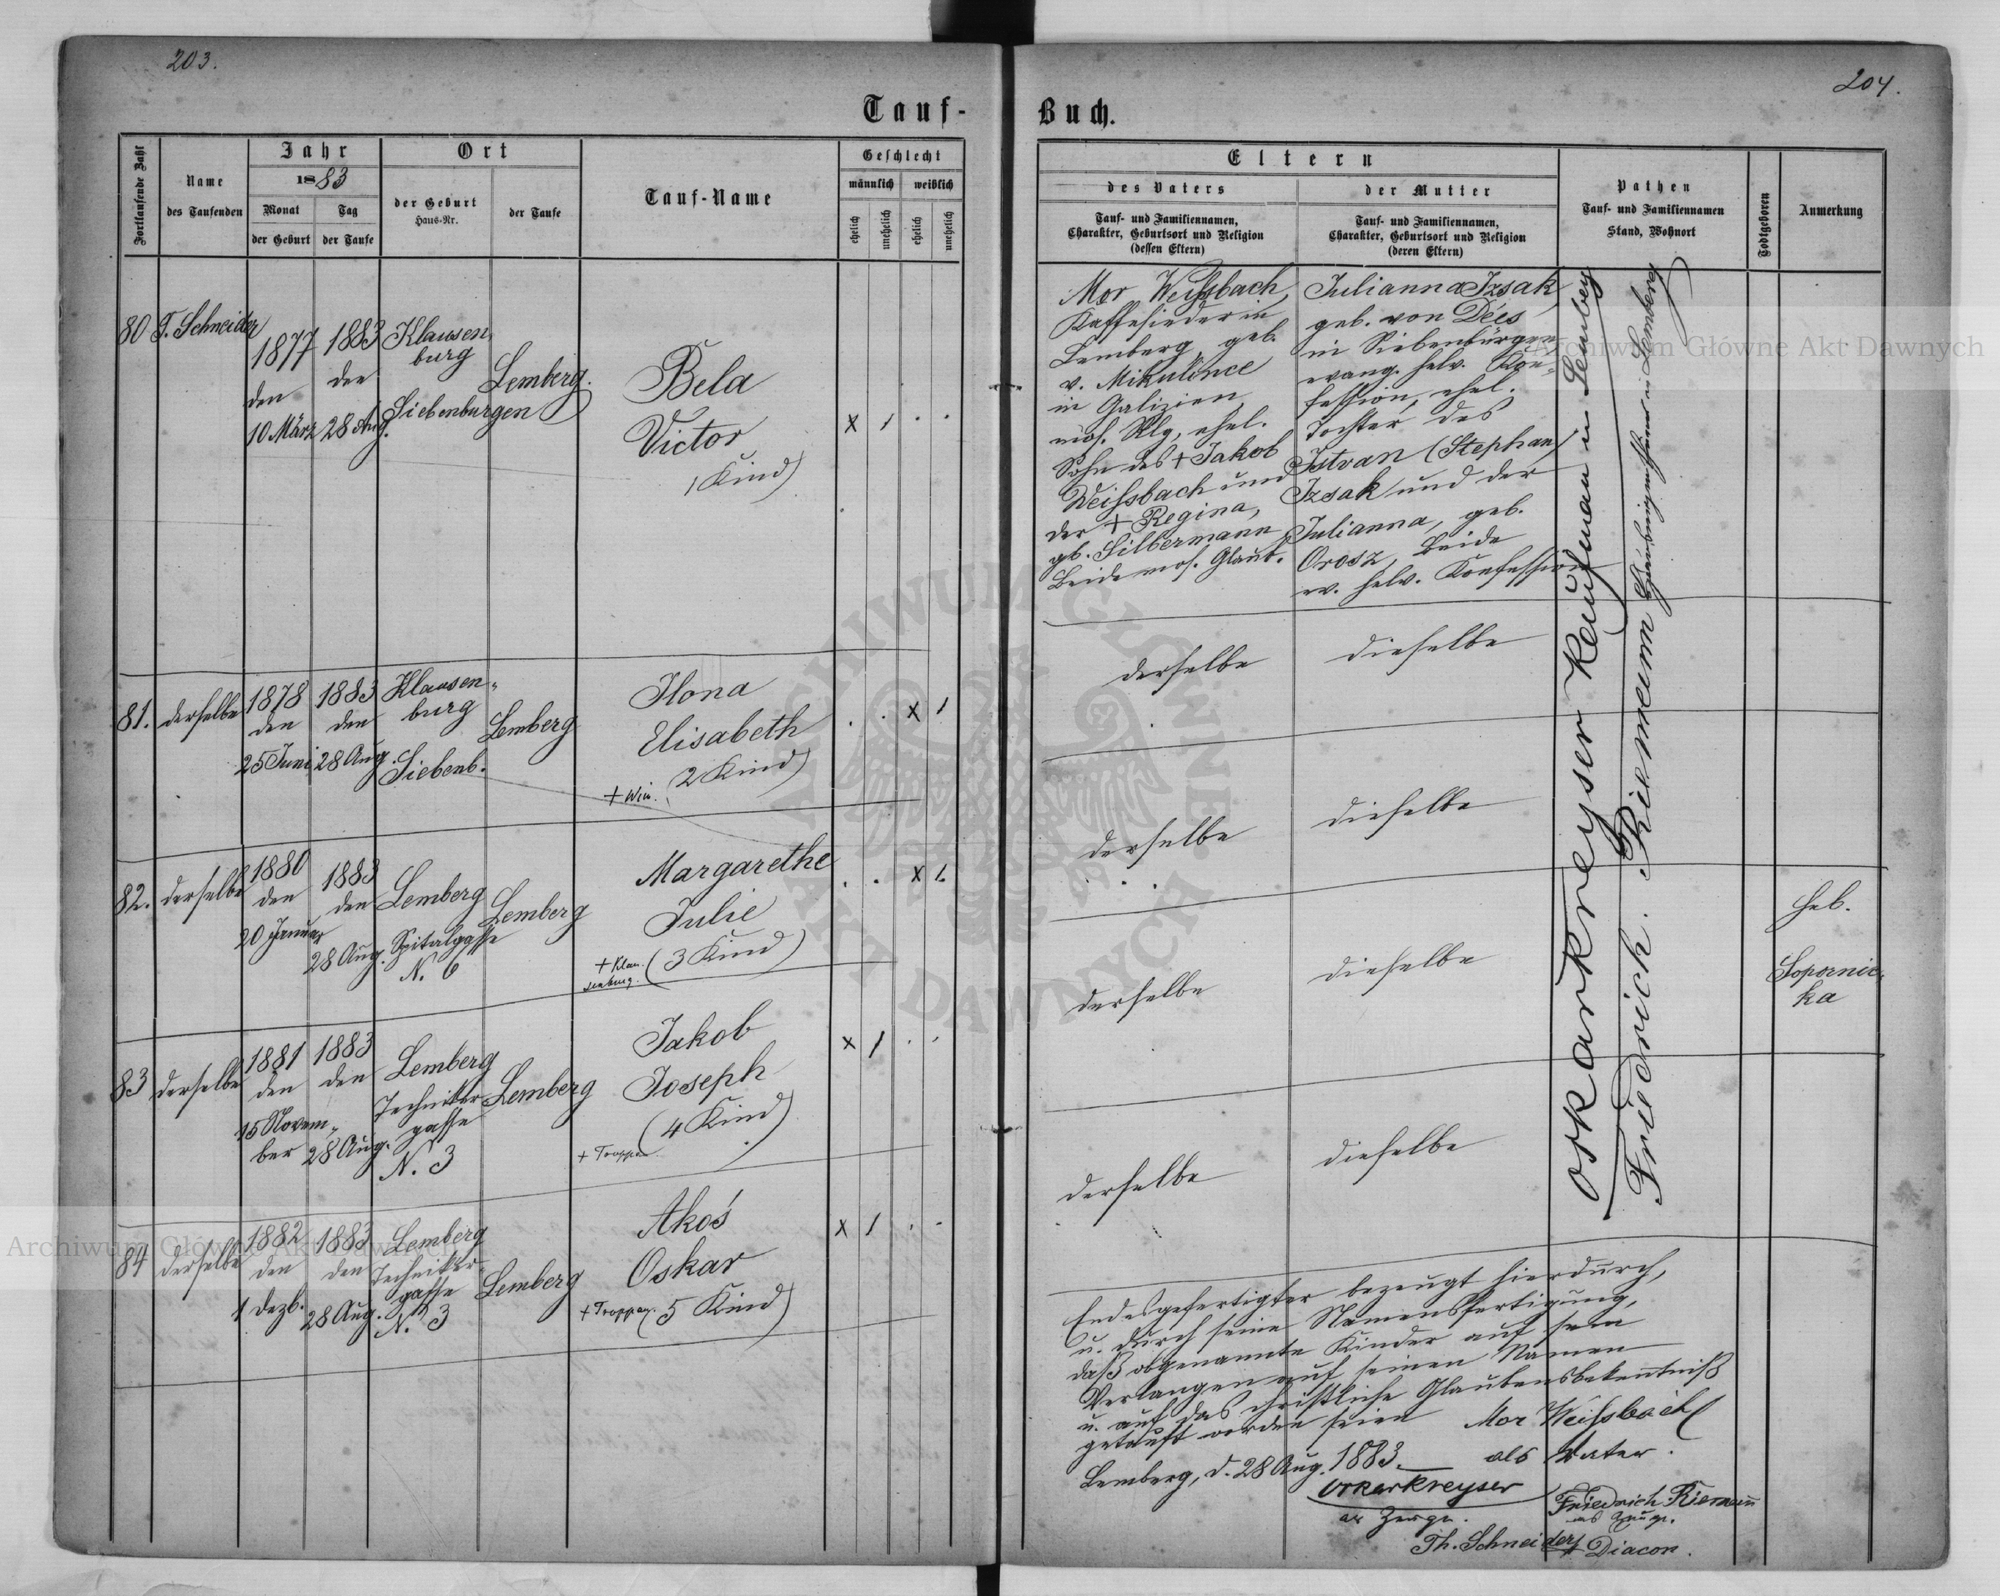 203.
204.
Tauf-
Buch.
Fortlaufende Zahl
Name
des Taufenden
Jahr
1883
Monat
der Geburt
Tag
der Taufe
Ort
der Geburt
Haus-Nr.
der Taufe
Tauf-Name
Geschlecht
männlich
weiblich
ehelich
unehelich
ehelich
unehelich
Eltern
des Vaters
Tauf- und Familiennamen,
Charakter, Geburtsort und Religion
(dessen Eltern)
der Mutter
Tauf- und Familiennamen,
Charakter, Geburtsort und Religion
(deren Eltern)
Pathen
Tauf- und Familiennamen
Stand, Wohnort
Todtgeboren
Anmerkung
80
T. Schneider
1877
den
10 März
1883
den
28 Aug.
Klausen-
burg
Siebenburgen
Lemberg.
Bela
Victor
1 Kind)
x 1 . .
Mor Weissbach,
Kaffesieder in
Lemberg geb.
v. Mikulince
in Galizien,
mos. Rlg, ehel.
Sohn des + Jakob
Weissbach und
der + Regina,
gb. Silbermann
Beide mos. Glaub.
Julianna Izsak,
geb. von Dées
in Siebenbürgen
evang. helv. Kon-
fession, ehel.
Tochter des
Istvan (Stephan)
Izsak und der
Julianna, geb.
Orosz, Beide
ev. helv. Konfession
Oskar Kreyser Kaufman in Lemberg
Friedrich Riemann in Lemberg
81.
derselbe
1878
den
25 Juni
1883
den
28 Aug.
Klausen-
burg
Siebenb.
Lemberg
Ilona
Elisabeth
(2 Kind)
+ Wien.
. . x 1
derselbe
dieselbe
82.
derselbe
1880
den
20 Januar
1883
den
28 Aug.
Lemberg
Spitalgasse
N. 6
Lemberg
Margarethe
Julie
(3 Kind)
+ Klau-
senburg.
. . x 1.
derselbe
dieselbe
Heb.
Sopornic-
ka
83
derselbe
1881
den
15 Novem-
ber
1883
den
28 Aug.
Lemberg
Techniker
gasse
N. 3
Lemberg
Jakob
Joseph
(4 Kind)
+ Troppau
x 1 . .
derselbe
dieselbe
84
derselbe
1882
den
1 Dezb.
1883
den
28 Aug.
Lemberg
Techniker-
gasse
N. 3
Lemberg
Akos
Oskar
(5 Kind)
+ Troppau.
x 1 . -
derselbe
dieselbe
Endesgefertigter bezeugt hierdurch,
u. durch seine Namensfertigung,
daß obgenannte Kinder auf sein
Verlangen auf seinen Namen
u. auf das christliche Glaubensbekenntniß
getauft worden seien
Mor Weissbach
Lemberg, d. 28 Aug. 1883.
als Vater.
Oskar Kreyser
als Zeuge.
Friedrich Riemann
als Zeuge.
Th. Schneider, Diacon.
Archiwum Główne Akt Dawnych
Archiwum Główne Akt Dawnych
ARCHIWUM GŁÓWNE
AKT DAWNYCH